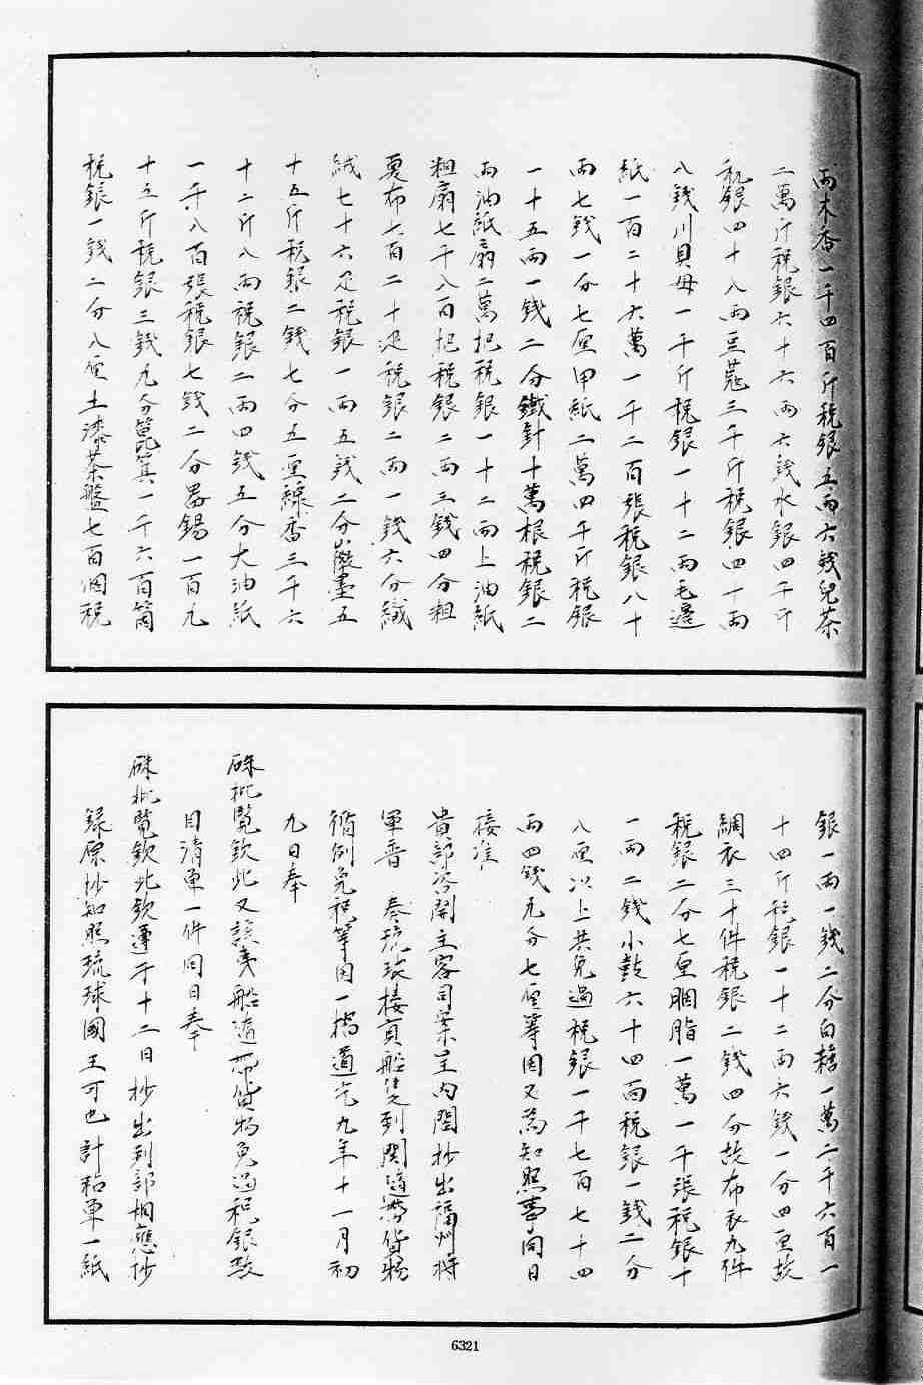 兩木香一千四百斤稅銀五兩六錢兒茶
二萬斤稅銀六十六兩六錢水銀四千斤
稅銀四十八兩豆蔻三千斤稅銀四十兩
八錢川貝母一千斤稅銀一十二兩毛邊
紙一百二十六萬一千二百張稅銀八十
兩七錢一分七厘甲紙二萬四千斤稅銀
一十五兩一錢二分鐵針十萬根稅銀二
兩油紙扇二萬把稅銀一十二兩上油紙
粗扇七千八百把稅銀二兩三錢四分粗
夏布七百二十疋稅銀二兩一錢六分織
絨七十六疋稅銀一兩五錢二分徽墨五
十五斤稅銀二錢七分五厘線香三千六
十二斤八兩稅銀二兩四錢五分大油紙
一千八百張稅銀七錢二分器錫一百九
十五斤稅銀三錢九分箆箕一千六百箇
稅銀一錢二分八厘土漆茶盤七百個稅
銀一兩一錢二分白糖一萬二千六百一
十四斤稅銀一十二兩六錢一分四厘故
綢衣三十件稅銀二錢四分故布衣九件
稅銀二分七厘胭脂一萬一千張稅銀十
一兩二錢小鼓六十四面稅銀一錢二分
八厘以上共免過稅銀一千七百七十四
兩四錢九分七厘等因又為知照事同日
接准
貴部咨開主客司案呈內閣抄出福州將
軍晋 奏琉球接貢船隻到關隨帶貨物
循例免稅等因一摺道光九年十一月初
九日奉
硃批覽欽此又該夷船隨帶貨物免過稅銀數
目清單一件同日奉
硃批覽欽此欽遵于十二日抄出到部相應抄
錄原抄知照琉球國王可也計粘單一紙
6321